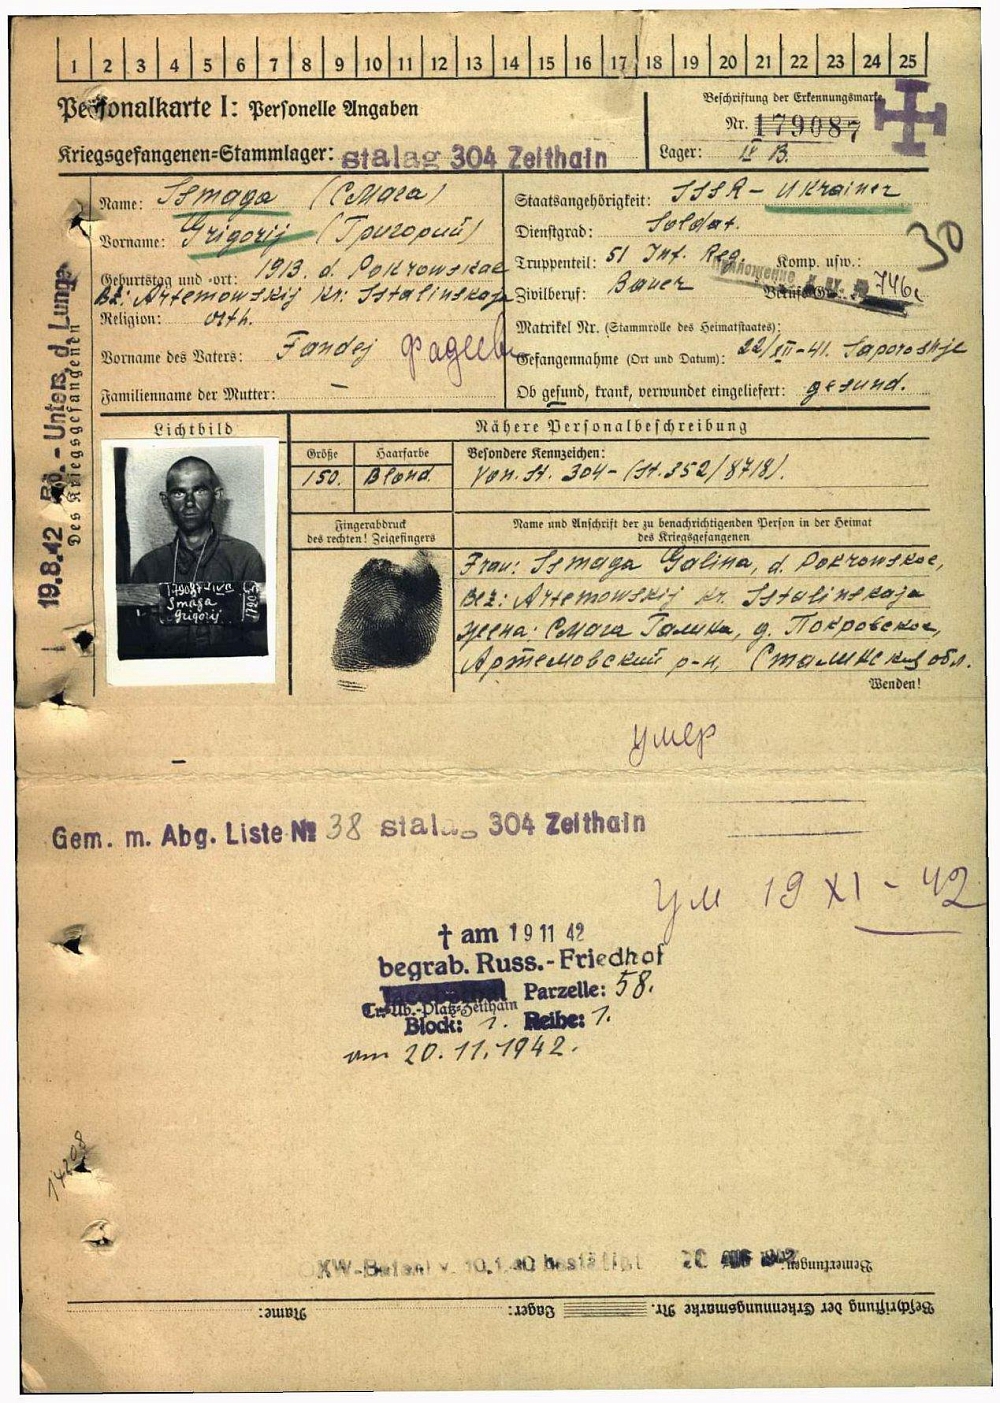 1 2 3 4 5 6 7 8 9 10 11 12 13 14 15 16 17 18 19 20 21 22 23 24 25
Personalkarte I: Personelle Angaben
Beschriftung der Erkennungsmarke
Nr. 179087
Kriegsgefangenen-Stammlager: Stalag 304 Zeithain
Lager: IV B.
Name: Ssmaga (Смага)
Vorname: Grigorij (Григорий)
Geburtstag und -ort: 1913. d. Pokrowskoe
Bez: Artemowskij Kr: Sstalinskaja
Religion: orth.
Vorname des Vaters: Fandej Фадеев
Familienname der Mutter: –
Staatsangehörigkeit: SSSR – Ukrainer
Dienstgrad: Soldat.
30
Truppenteil: 51 Inf. Reg. Komp. usw.:
Zivilberuf: Bauer
746
Matrikel Nr. (Stammrolle des Heimatstaates):
Gefangennahme (Ort und Datum): 22/XII-41. Saporoshje
Ob gesund, krank, verwundet eingeliefert: gesund.
19.8.42 Rö.-Unters. d. Lunge
Des Kriegsgefangenen
Lichtbild
Nähere Personalbeschreibung
Größe
Haarfarbe
Besondere Kennzeichen:
150. Blond.
Von. St. 304 - (St. 352/8718).
Fingerabdruck
des rechten! Zeigefingers
Name und Anschrift der zu benachrichtigenden Person in der Heimat
des Kriegsgefangenen
179087 IVB
Smaga
Grigorij
Frau: Ssmaga Galina, d. Pokrowskoe,
Bez: Artemowskij Kr. Sstalinskaja
жена: Смага Галина, д. Покровское,
Артемовский р-н, Сталинский обл.
Wenden!
умер
Gem. m. Abg. Liste № 38 Stalag 304 Zeithain
ум 19 XI - 42
† am 19 11 42
begrab. Russ.-Friedhof
Parzelle: 58.
Tr.-Üb.-Platz Zeithain
Block: 1. Reihe: 1.
am 20.11.1942.
14208
OKW-Befehl v. 10.1.40 bestätigt
Bemerkungen:
Beschriftung der Erkennungsmarke Nr. Lager: Name: